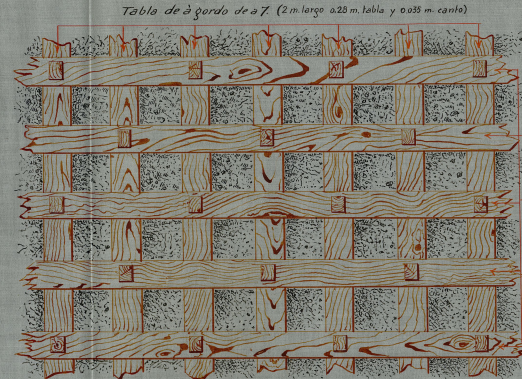 Tabla de à gordo de a 7. (2 m. largo 0.28 m. tabla y 0.035 m. canto)